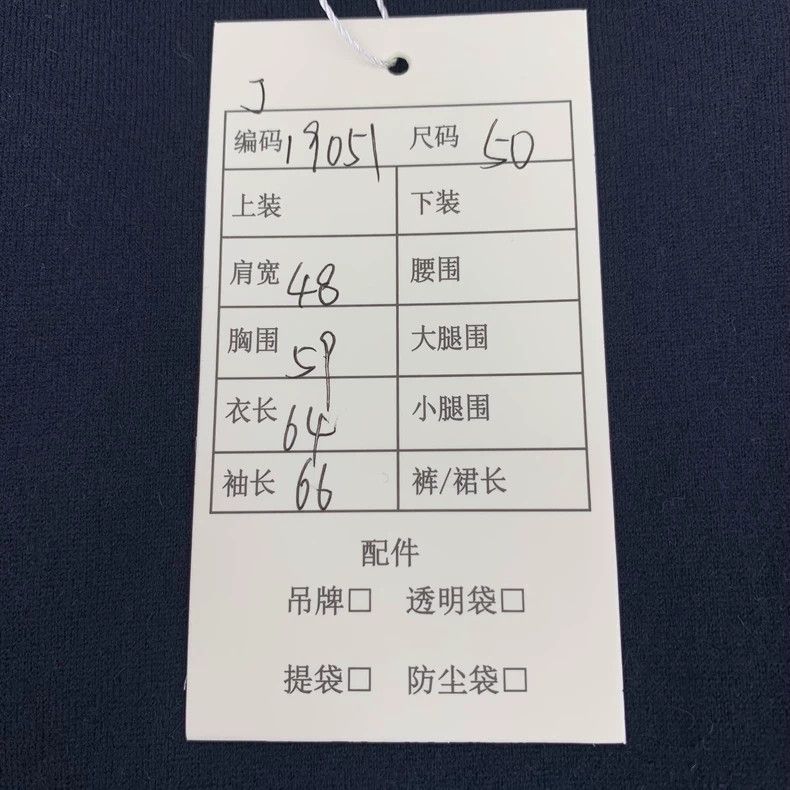 J
编码 19051 尺码 50
上装 下装
肩宽 48 腰围
胸围 59 大腿围
衣长 64 小腿围
袖长 66 裤/裙长
配件
吊牌□ 透明袋□
提袋□ 防尘袋□